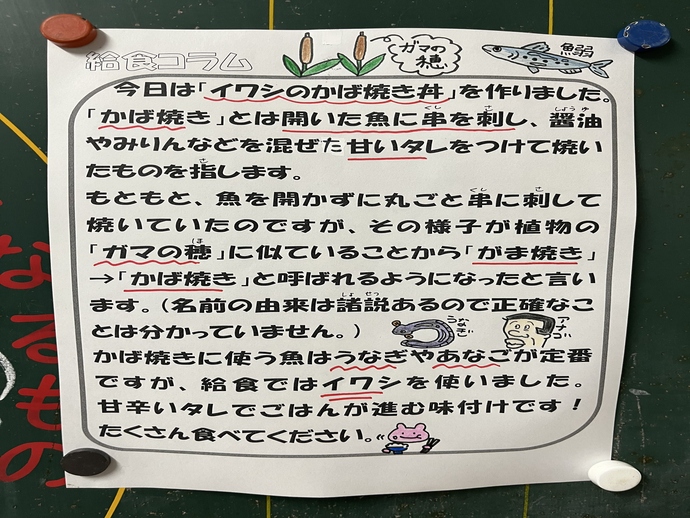 給食コラム
ガマの
穂
鰯
今日は「イワシのかば焼き丼」を作りました。
「かば焼き」とは開いた魚に串を刺し、醤油
やみりんなどを混ぜた甘いタレをつけて焼い
たものを指します。
もともと、魚を開かずに丸ごと串に刺して
焼いていたのですが、その様子が植物の
「ガマの穂」に似ていることから「がま焼き」
→「かば焼き」と呼ばれるようになったと言い
ます。(名前の由来は諸説あるので正確なこ
とは分かっていません。)
うなぎ
アナゴ
かば焼きに使う魚はうなぎやあなごが定番
ですが、給食ではイワシを使いました。
甘辛いタレでごはんが進む味付けです!
たくさん食べてください。
なるもの